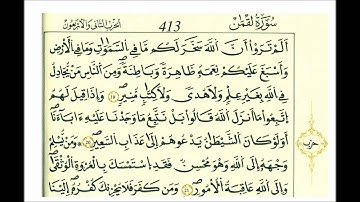 سُورَةُ لُقْمَٰن 413 الحزب الثاني والأربعون
أَلَمْ تَرَوْاْ أَنَّ ٱللَّهَ سَخَّرَ لَكُم مَّا فِي ٱلسَّمَٰوَٰتِ وَمَا فِي ٱلْأَرْضِ
وَأَسْبَغَ عَلَيْكُمْ نِعَمَهُۥ ظَٰهِرَةً وَبَاطِنَةً وَمِنَ ٱلنَّاسِ مَن يُجَٰدِلُ
فِي ٱللَّهِ بِغَيْرِ عِلْمٍ وَلَا هُدًى وَلَا كِتَٰبٍ مُّنِيرٍ وَإِذَا قِيلَ لَهُمُ
ٱتَّبِعُواْ مَآ أَنزَلَ ٱللَّهُ قَالُواْ بَلْ نَتَّبِعُ مَا وَجَدْنَا عَلَيْهِ ءَابَآءَنَآ
أَوَلَوْ كَانَ ٱلشَّيْطَٰنُ يَدْعُوهُمْ إِلَىٰ عَذَابِ ٱلسَّعِيرِ وَمَن يُسْلِمْ
وَجْهَهُۥٓ إِلَى ٱللَّهِ وَهُوَ مُحْسِنٌ فَقَدِ ٱسْتَمْسَكَ بِٱلْعُرْوَةِ ٱلْوُثْقَىٰ
وَإِلَى ٱللَّهِ عَٰقِبَةُ ٱلْأُمُورِ وَمَن كَفَرَ فَلَا يَحْزُنكَ كُفْرُهُۥٓ إِلَيْنَا
حزب